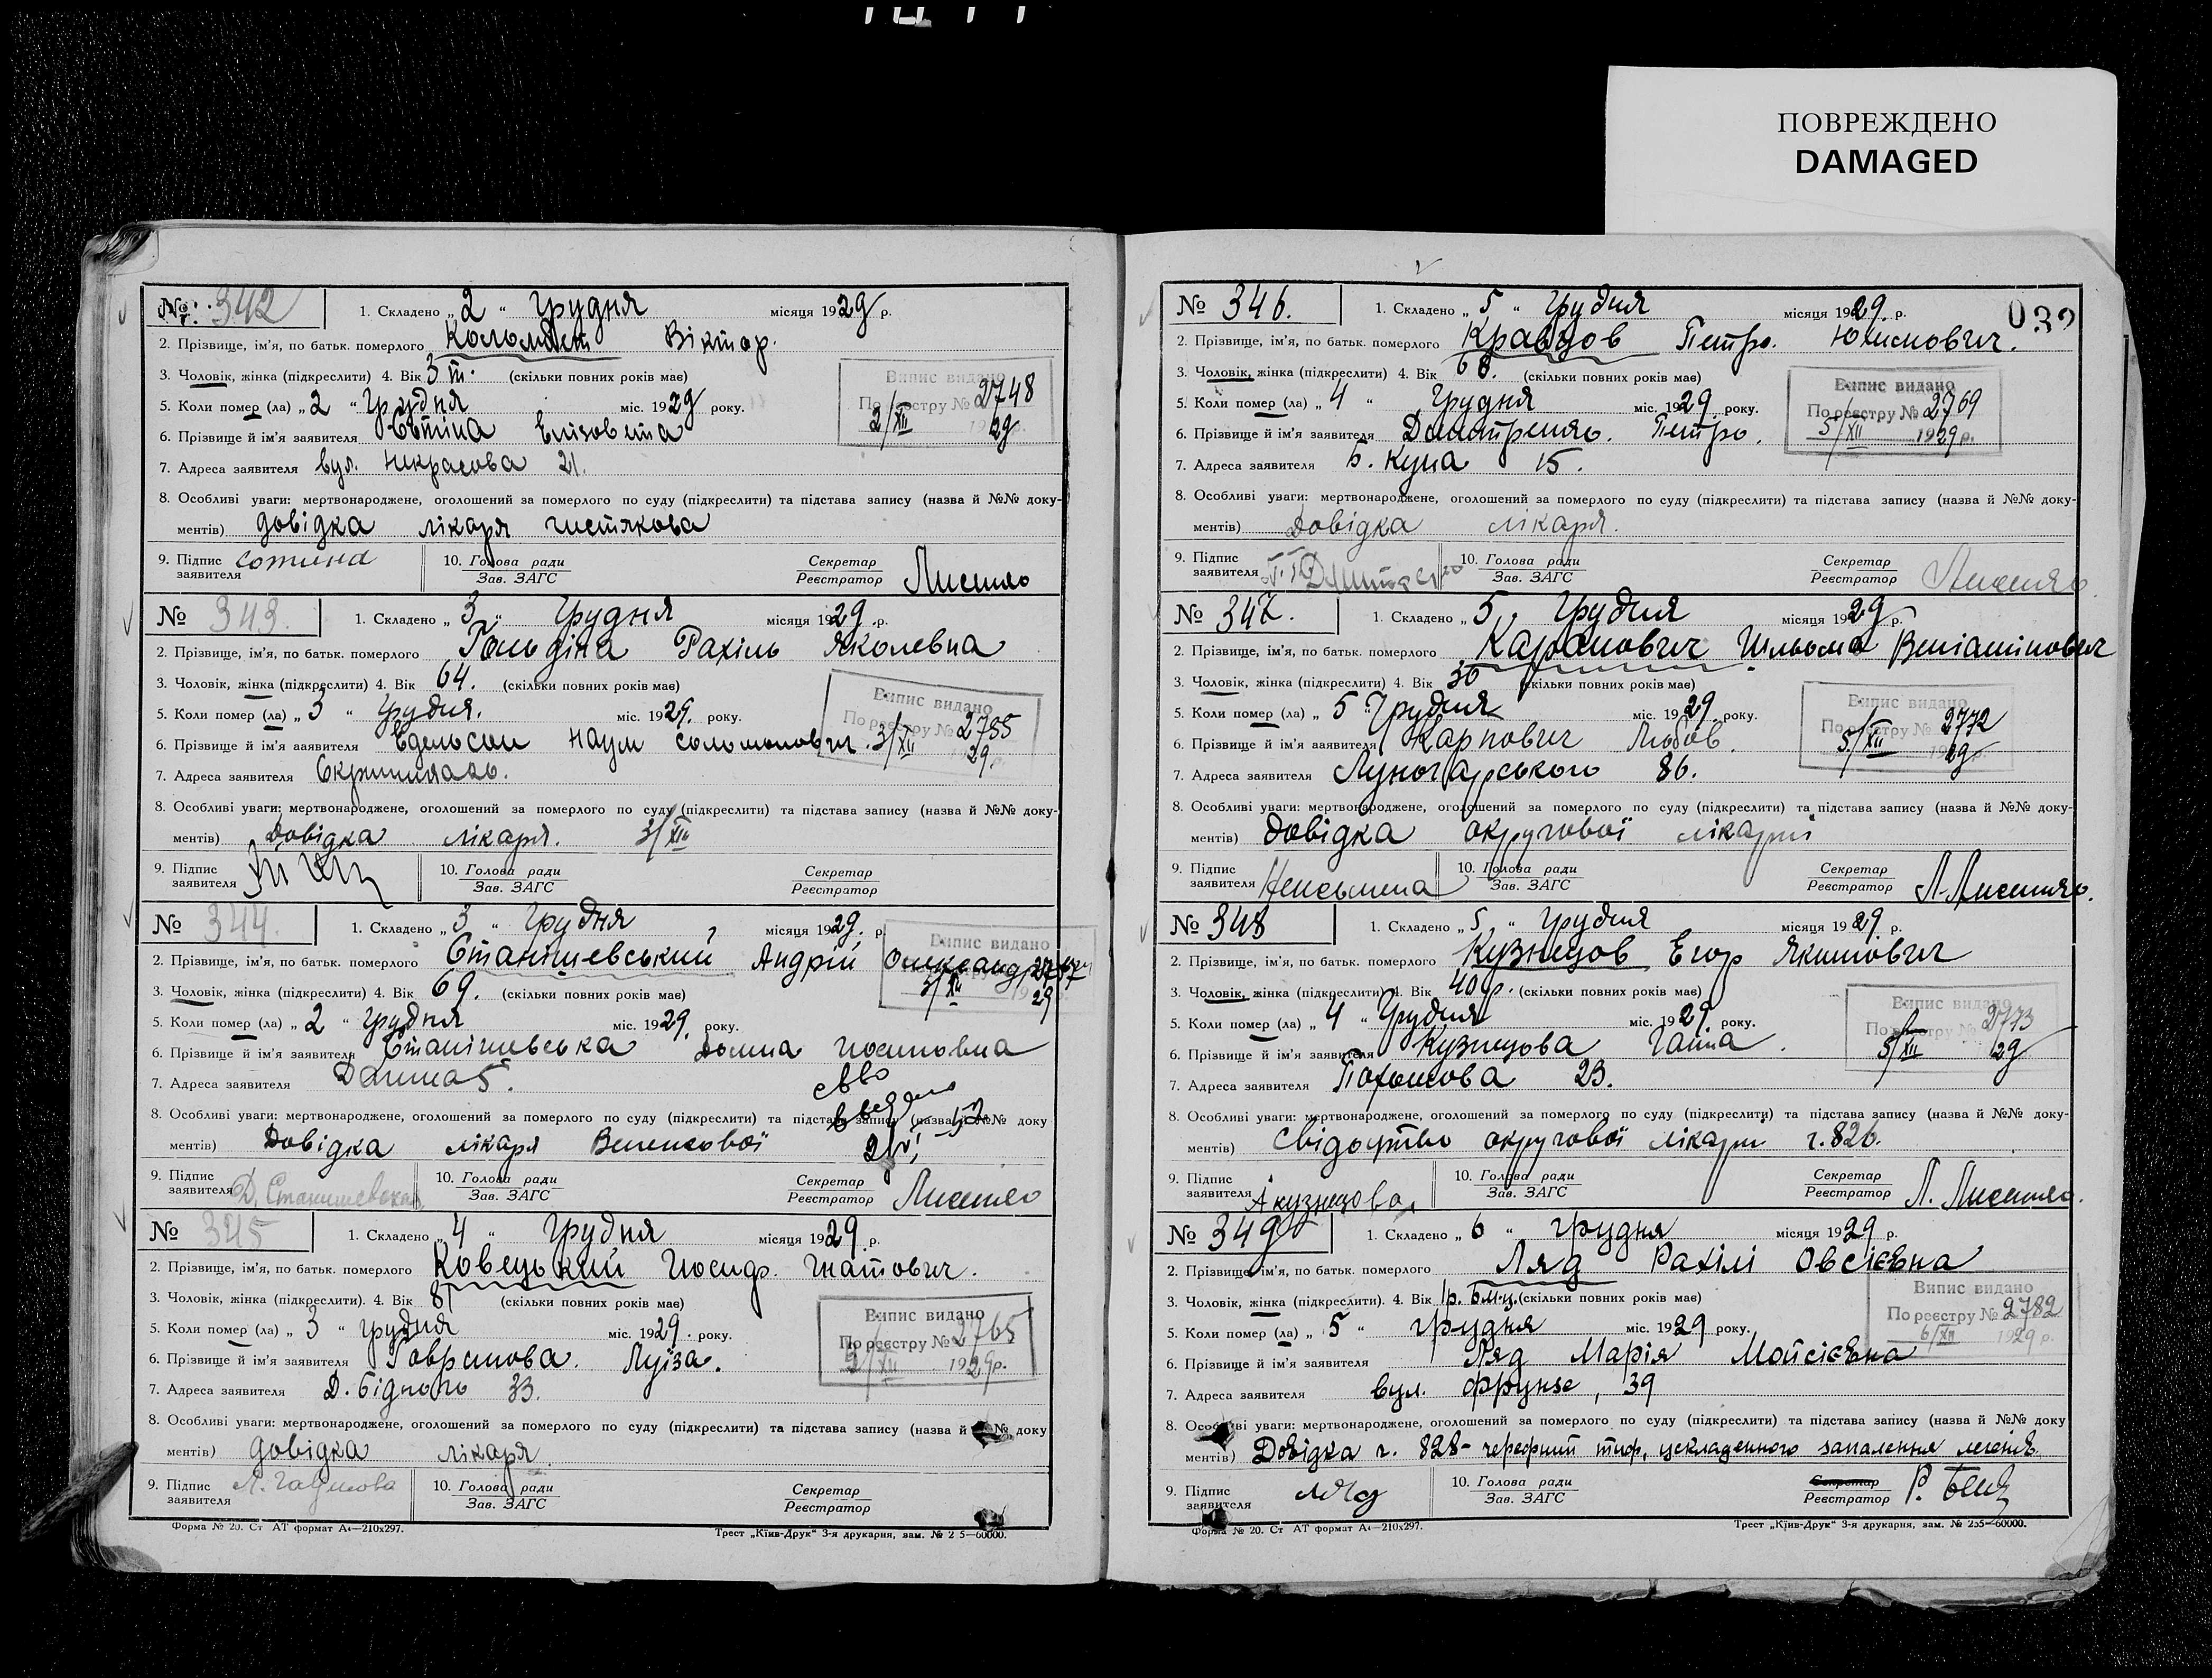 ПОВРЕЖДЕНО
DAMAGED
№ 342 1. Складено „ 2 “ Грудня місяця 1929 р.
2. Прізвище, ім'я, по батьк. померлого Віктор.
3. Чоловік, жінка (підкреслити) 4. Вік 3 т. (скільки повних років має)
5. Коли помер (ла) „ 2 “ Грудня міс. 1929 року.
6. Прізвище й ім'я заявителя Єлізовета
7. Адреса заявителя вул. Некрасова 21.
8. Особливі уваги: мертвонароджене, оголошений за померлого по суду (підкреслити) та підстава запису (назва й №№ доку-
ментів) довідка лікаря Чистякова
Випис видано
По реєстру № 2748
2/XII 1929 р.
9. Підпис заявителя 10. Голова ради Зав. ЗАГС Секретар Реєстратор Лисенко
№ 343. 1. Складено „ 3 “ Грудня місяця 1929 р.
2. Прізвище, ім'я, по батьк. померлого Гольдіна Рахіль Яковлевна
3. Чоловік, жінка (підкреслити) 4. Вік 64. (скільки повних років має)
5. Коли помер (ла) „ 3 “ Грудня. міс. 1929. року.
6. Прізвище й ім'я заявителя Едельсон Наум Соломонович.
7. Адреса заявителя
8. Особливі уваги: мертвонароджене, оголошений за померлого по суду (підкреслити) та підстава запису (назва й №№ доку-
ментів) Довідка лікаря. 3/XII
Випис видано
По реєстру № 2755
3/XII 29.
9. Підпис заявителя 10. Голова ради Зав. ЗАГС Секретар Реєстратор
№ 344. 1. Складено „ 3 “ Грудня місяця 1929. р.
2. Прізвище, ім'я, по батьк. померлого Станішевський Андрій Олександр
3. Чоловік, жінка (підкреслити) 4. Вік 69. (скільки повних років має)
5. Коли помер (ла) „ 2 “ Грудня міс. 1929. року.
6. Прізвище й ім'я заявителя Станішевська Домна Йосиповна
7. Адреса заявителя
8. Особливі уваги: мертвонароджене, оголошений за померлого по суду (підкреслити) та підстава запису (назва й №№ доку
ментів) Довідка лікаря
Випис видано
3/XII 29
9. Підпис заявителя Д. Станишевская 10. Голова ради Зав. ЗАГС Секретар Реєстратор Лисенко
№ 345 1. Складено „ 4 “ Грудня місяця 1929 р.
2. Прізвище, ім'я, по батьк. померлого Ковецький Йосиф. Гнатович.
3. Чоловік, жінка (підкреслити). 4. Вік 81 (скільки повних років має)
5. Коли помер (ла) „ 3 “ грудня міс. 1929. року.
6. Прізвище й ім'я заявителя Луїза.
7. Адреса заявителя Д. Бідного 33.
8. Особливі уваги: мертвонароджене, оголошений за померлого по суду (підкреслити) та підстава запису (назва й №№ доку
ментів) довідка лікаря.
Випис видано
По реєстру № 2765
1929 р.
9. Підпис заявителя 10. Голова ради Зав. ЗАГС Секретар Реєстратор
Форма № 20. Ст АТ формат А4—210x297. Трест „Київ-Друк“ 3-я друкарня, зам. № 2 5—60000.
032
№ 346. 1. Складено „ 5 “ Грудня місяця 1929. р.
2. Прізвище, ім'я, по батьк. померлого Кравцов Петро. Юхимович.
3. Чоловік, жінка (підкреслити) 4. Вік 68. (скільки повних років має)
5. Коли помер (ла) „ 4 “ Грудня міс. 1929. року.
6. Прізвище й ім'я заявителя Петро.
7. Адреса заявителя Б. Куна 15.
8. Особливі уваги: мертвонароджене, оголошений за померлого по суду (підкреслити) та підстава запису (назва й №№ доку-
ментів) Довідка лікаря.
Випис видано
По реєстру № 2769
5/XII 1929 р.
9. Підпис заявителя 10. Голова ради Зав. ЗАГС Секретар Реєстратор Лисенко.
№ 347. 1. Складено „ 5 “ Грудня місяця 1929 р.
2. Прізвище, ім'я, по батьк. померлого Шльома Веніамінович
3. Чоловік, жінка (підкреслити) 4. Вік 36 (скільки повних років має)
5. Коли помер (ла) „ 5 “ Грудня міс. 1929 року.
6. Прізвище й ім'я заявителя Карпович Любов.
7. Адреса заявителя Луночарського 86.
8. Особливі уваги: мертвонароджене, оголошений за померлого по суду (підкреслити) та підстава запису (назва й №№ доку-
ментів) Довідка округової лікарні
Випис видано
По реєстру № 2772
5/XII 29
9. Підпис заявителя Неписьмена 10. Голова ради Зав. ЗАГС Секретар Реєстратор Л. Лисенко.
№ 348 1. Складено „ 5 “ Грудня місяця 1929 р.
2. Прізвище, ім'я, по батьк. померлого Кузнецов Егор Якимович
3. Чоловік, жінка (підкреслити) 4. Вік 40 р. (скільки повних років має)
5. Коли помер (ла) „ 4 “ Грудня міс. 1929 року.
6. Прізвище й ім'я заявителя Кузнецова Ганна.
7. Адреса заявителя 23.
8. Особливі уваги: мертвонароджене, оголошений за померлого по суду (підкреслити) та підстава запису (назва й №№ доку-
ментів) Свідоцтво округової лікарні ч. 826.
Випис видано
По реєстру № 2773
5/XII 29
9. Підпис заявителя А Кузнецова 10. Голова ради Зав. ЗАГС Секретар Реєстратор Л. Лисенко.
№ 349 1. Складено „ 6 “ грудня місяця 1929 р.
2. Прізвище, ім'я, по батьк. померлого Ляд Рахілі Овсієвна
3. Чоловік, жінка (підкреслити). 4. Вік 1 р. 6 м-ц. (скільки повних років має)
5. Коли помер (ла) „ 5 “ грудня міс. 1929 року.
6. Прізвище й ім'я заявителя Ляд Марія Мойсієвна
7. Адреса заявителя вул. Фрунзе, 39
8. Особливі уваги: мертвонароджене, оголошений за померлого по суду (підкреслити) та підстава запису (назва й №№ доку
ментів) Довідка ч. 828 - черефний тиф, ускладенного запалення легенів
Випис видано
По реєстру № 2782
6/XII 1929 р.
9. Підпис заявителя Ляд 10. Голова ради Зав. ЗАГС Секретар Реєстратор
Форма № 20. Ст АТ формат А4—210x297. Трест „Київ-Друк“ 3-я друкарня, зам. № 235—60000.